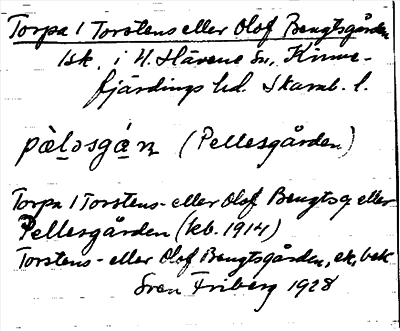 Torpa 1 Torstens eller Olof Bengtsgården
1sk. i N. Härene sn, Kinne-
fjärdings hd. Skarab. l.
pàl̩osgá̱n (Pellesgården)
Torpa 1 Torstens- eller Olof Bengtsg eller
Pellesgården (kb. 1914)
Torstens- eller Olof Bengtsgården, ek. bek
Sven Friberg 1928